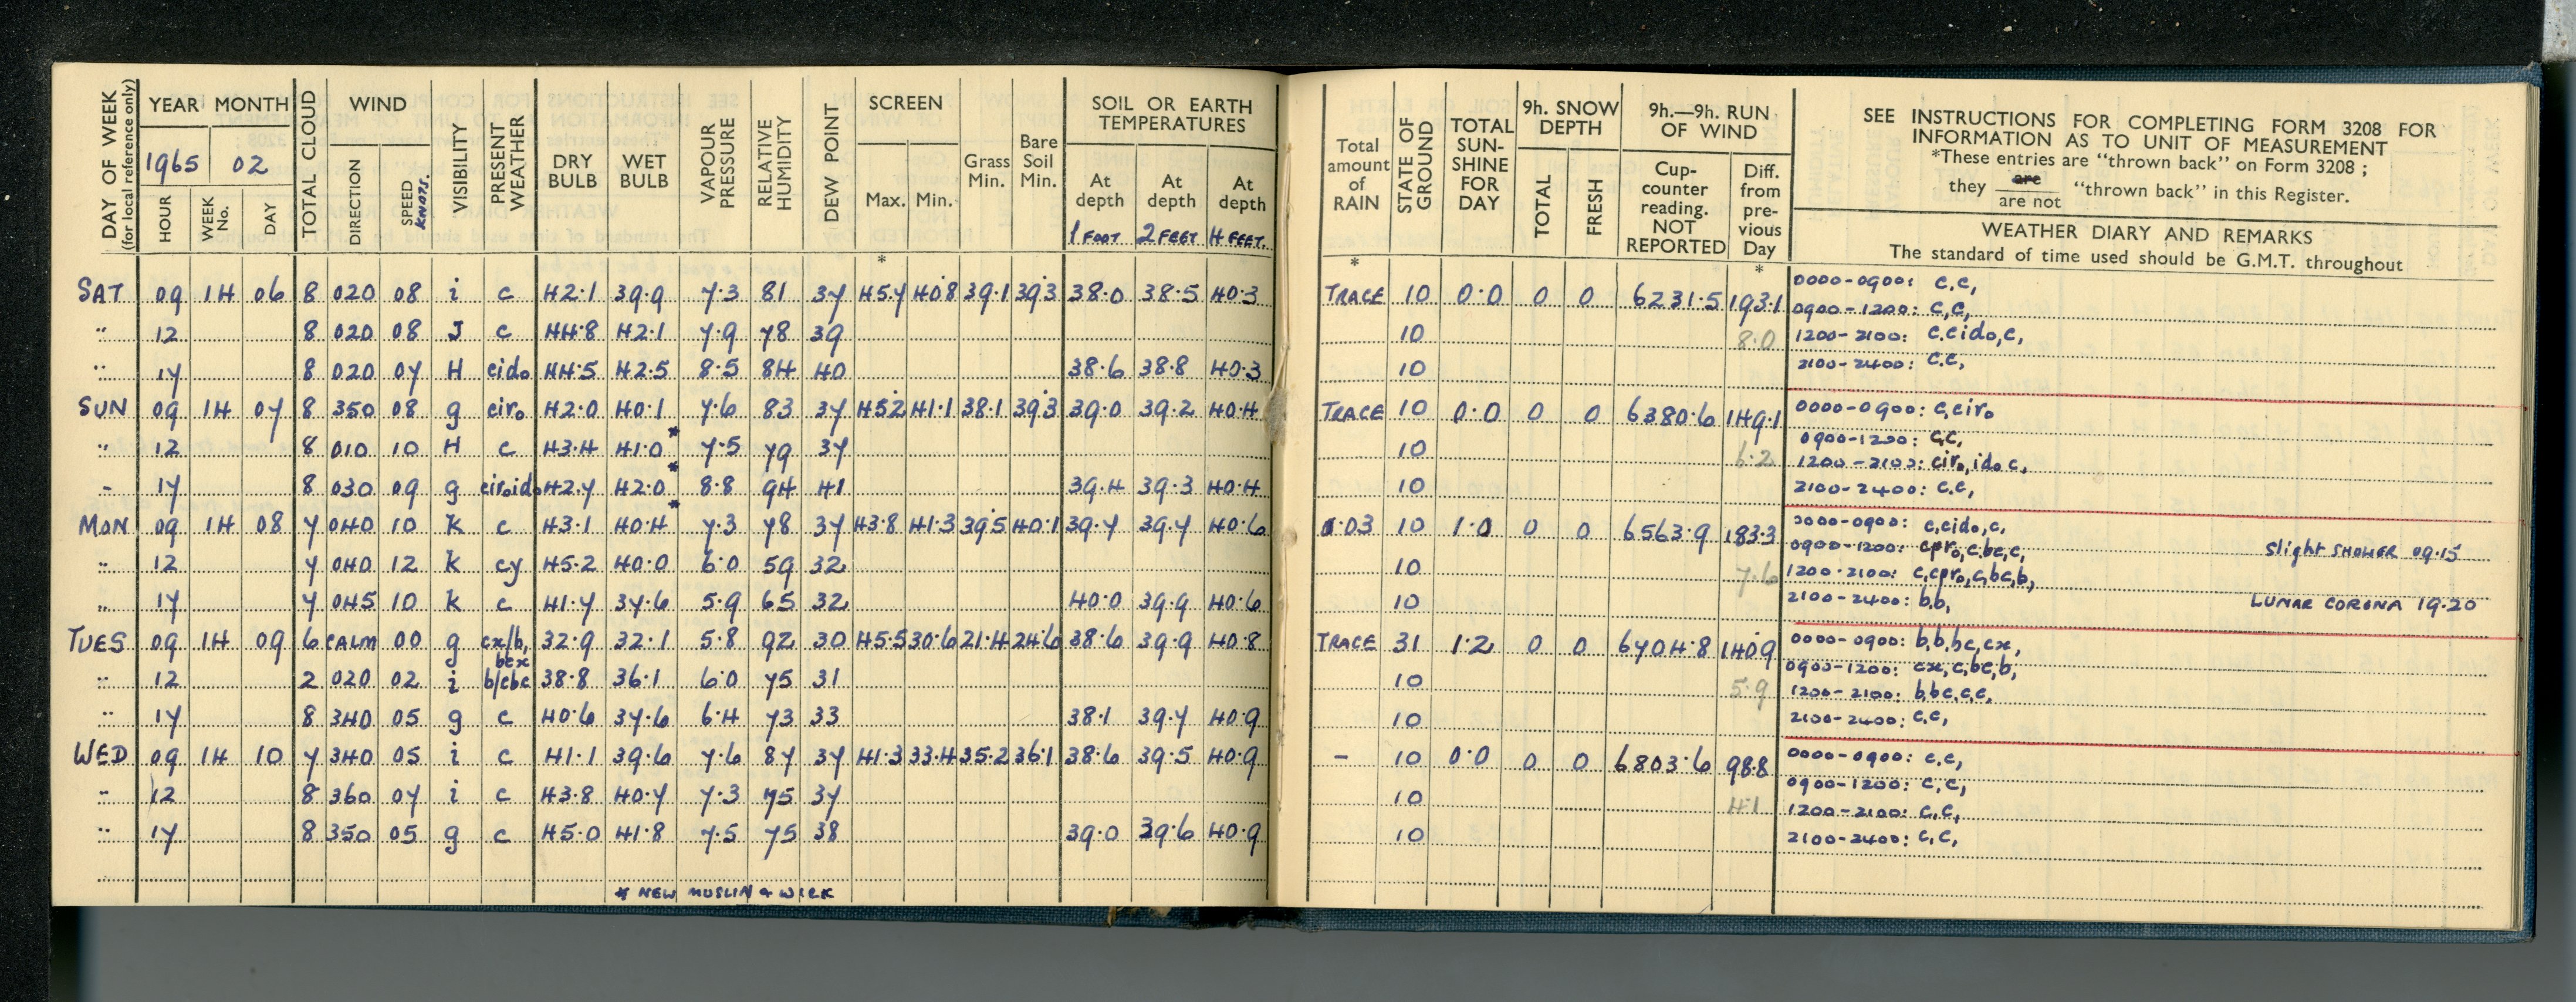 DAY OF WEEK (for local reference only)
YEAR MONTH
1965 02
HOUR WEEK No. DAY
TOTAL CLOUD
WIND
DIRECTION SPEED KNOTS.
VISIBILITY
PRESENT WEATHER
DRY BULB
WET BULB
VAPOUR PRESSURE
RELATIVE HUMIDITY
DEW POINT
SCREEN
Max. Min.
Grass Min.
Bare Soil Min.
SOIL OR EARTH TEMPERATURES
At depth 1 FOOT
At depth 2 FEET
At depth 4 FEET.
*
Total amount of RAIN
*
STATE OF GROUND
TOTAL SUN-SHINE FOR DAY
9h. SNOW DEPTH
TOTAL FRESH
9h.—9h. RUN OF WIND
Cup-counter reading. NOT REPORTED
Diff. from pre-vious Day
*
SEE INSTRUCTIONS FOR COMPLETING FORM 3208 FOR
INFORMATION AS TO UNIT OF MEASUREMENT
*These entries are "thrown back" on Form 3208 ;
they are / are not "thrown back" in this Register.
WEATHER DIARY AND REMARKS
The standard of time used should be G.M.T. throughout
SAT 09 14 06 8 020 08 i c 42.1 39.9 7.3 81 37 45.7 40.8 39.1 39.3 38.0 38.5 40.3 TRACE 10 0.0 0 0 6231.5 193.1 0000-0900: c,c,
0900-1200: c,c,
" 12 8 020 08 J c 44.8 42.1 7.9 78 39 10 8.0 1200-2100: c,cido,c,
" 17 8 020 07 H cido 44.5 42.5 8.5 84 40 38.6 38.8 40.3 10 2100-2400: c,c,
SUN 09 14 07 8 350 08 g ciro 42.0 40.1 7.6 83 37 45.2 41.1 38.1 39.3 39.0 39.2 40.4 TRACE 10 0.0 0 0 6380.6 149.1 0000-0900: c,ciro
0900-1200: c,c,
" 12 8 010 10 H c 43.4 41.0* 7.5 79 37 10 6.2 1200-2100: ciro,ido,c,
" 17 8 030 09 g ciroido 42.7 42.0* 8.8 94 41 39.4 39.3 40.4 10 2100-2400: c,c,
MON 09 14 08 7 040 10 k c 43.1 40.4* 7.3 78 37 43.8 41.3 39.5 40.1 39.7 39.7 40.6 0.03 10 1.0 0 0 6563.9 183.3 0000-0900: c,cido,c,
0900-1200: cpro,c,bc,c, Slight SHOWER 09.15
" 12 7 040 12 k cy 45.2 40.0 6.0 59 32 10 7.6 1200-2100: c,cpro,c,bc,b,
" 17 7 045 10 k c 41.7 37.6 5.9 65 32 40.0 39.9 40.6 10 2100-2400: b,b, LUNAR CORONA 19.20
TUES 09 14 09 6 CALM 00 g cx/b,bcx 32.9 32.1 5.8 92 30 45.5 30.6 21.4 24.6 38.6 39.9 40.8 TRACE 31 1.2 0 0 6704.8 140.9 0000-0900: b,b,bc,cx,
0900-1200: cx,c,bc,b,
" 12 2 020 02 i b/cbc 38.8 36.1 6.0 75 31 10 5.9 1200-2100: b,bc,c,c,
" 17 8 340 05 g c 40.6 37.6 6.4 73 33 38.1 39.7 40.9 10 2100-2400: c,c,
WED 09 14 10 7 340 05 i c 41.1 39.6 7.6 87 37 41.3 33.4 35.2 36.1 38.6 39.5 40.9 - 10 0.0 0 0 6803.6 98.8 0000-0900: c,c,
0900-1200: c,c,
" 12 8 360 07 i c 43.8 40.7 7.3 75 37 10 4.1 1200-2100: c,c,
" 17 8 350 05 g c 45.0 41.8 7.5 75 38 39.0 39.6 40.9 10 2100-2400: c,c,
* NEW MUSLIN & WICK